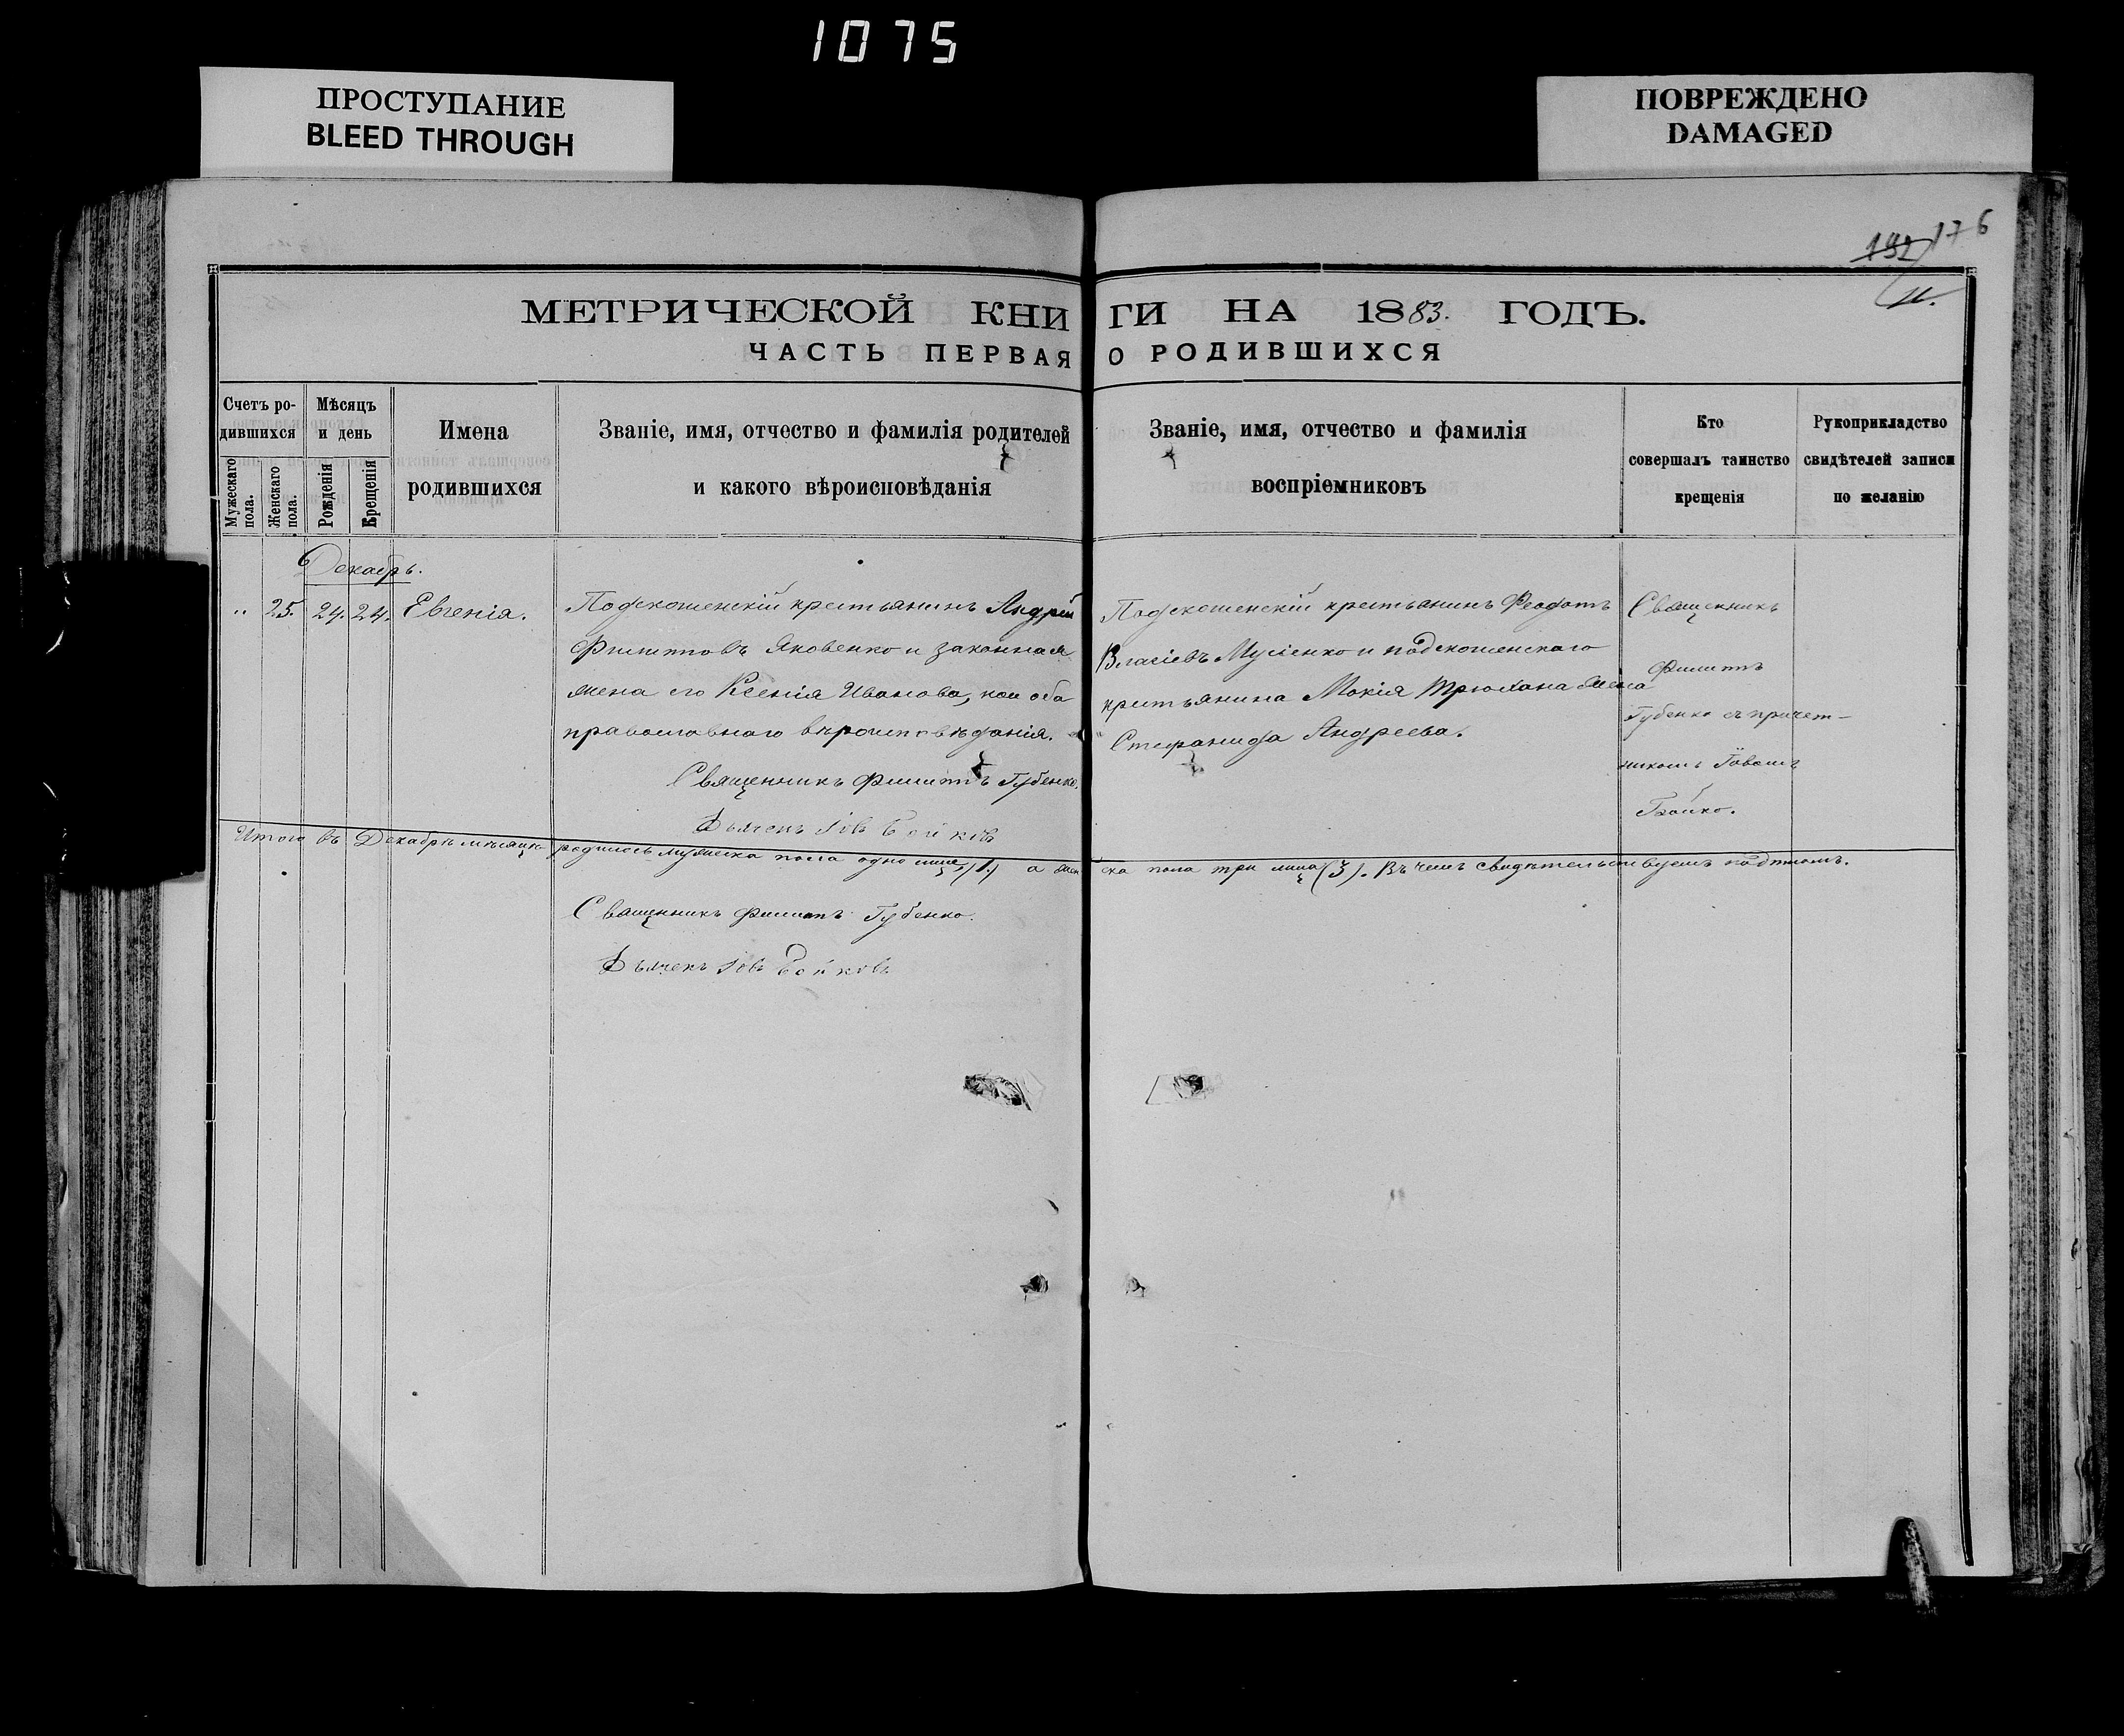 1075
ПРОСТУПАНИЕ
BLEED THROUGH
ПОВРЕЖДЕНО
DAMAGED
192 176
МЕТРИЧЕСКОЙ КНИГИ НА 1883. ГОДЪ.
ЧАСТЬ ПЕРВАЯ О РОДИВШИХСЯ
Счетъ родившихся
Мужескаго пола.
Женскаго пола.
Мѣсяцъ и день
Рожденія
Крещенія
Имена
родившихся
Званіе, имя, отчество и фамилія родителей
и какого вѣроисповѣданія
Званіе, имя, отчество и фамилія
воспріемниковъ
Кто
совершалъ таинство
крещенія
Рукоприкладство
свидѣтелей записи
по желанію
Декабрь.
" 25. 24. 24. Евгенія.
Подскошенскій крестьянинъ Андрей
Филипповъ Яковенко и законная
жена его Ксенія Иванова, кои оба
православнаго вѣроисповѣданія.
Священникъ Филиппъ Губенко.
Дьячекъ Іовъ Бойковъ
Подскошенскій крестьянинъ Феодотъ
Власіевъ Мусіенко и подскошенскаго
крестьянина Мокія Трюхана жена
Стефанида Андреева.
Священникъ
Филиппъ
Губенко съ причет-
никомъ Іовомъ
Бойко.
Итого въ Декабрѣ мѣсяцѣ родилось мужеска пола одно лице, (1.) а женска пола три лица (3). Въ чемъ свидѣтельствуемъ подписомъ.
Священникъ Филиппъ Губенко.
Дьячекъ Іовъ Бойковъ